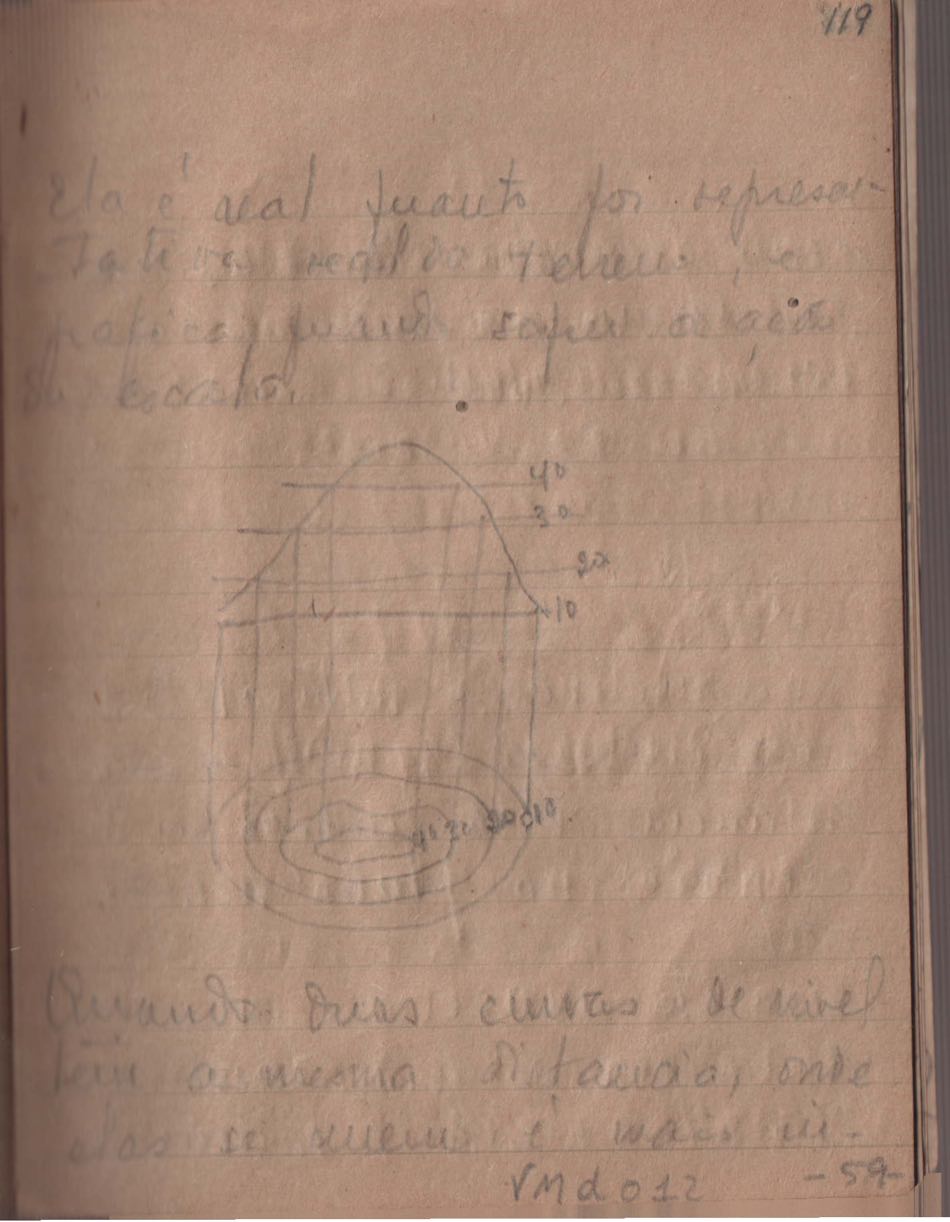 119
Ela é real quanto for represen-
tativa real do terreno, e
grafica, quando sofre a ação
da escala.
40
30
20
10
40 30 20 10
Quando duas curvas de nivel
tem a mesma distancia, onde
elas se unem é mais in-
VMd012 -59-